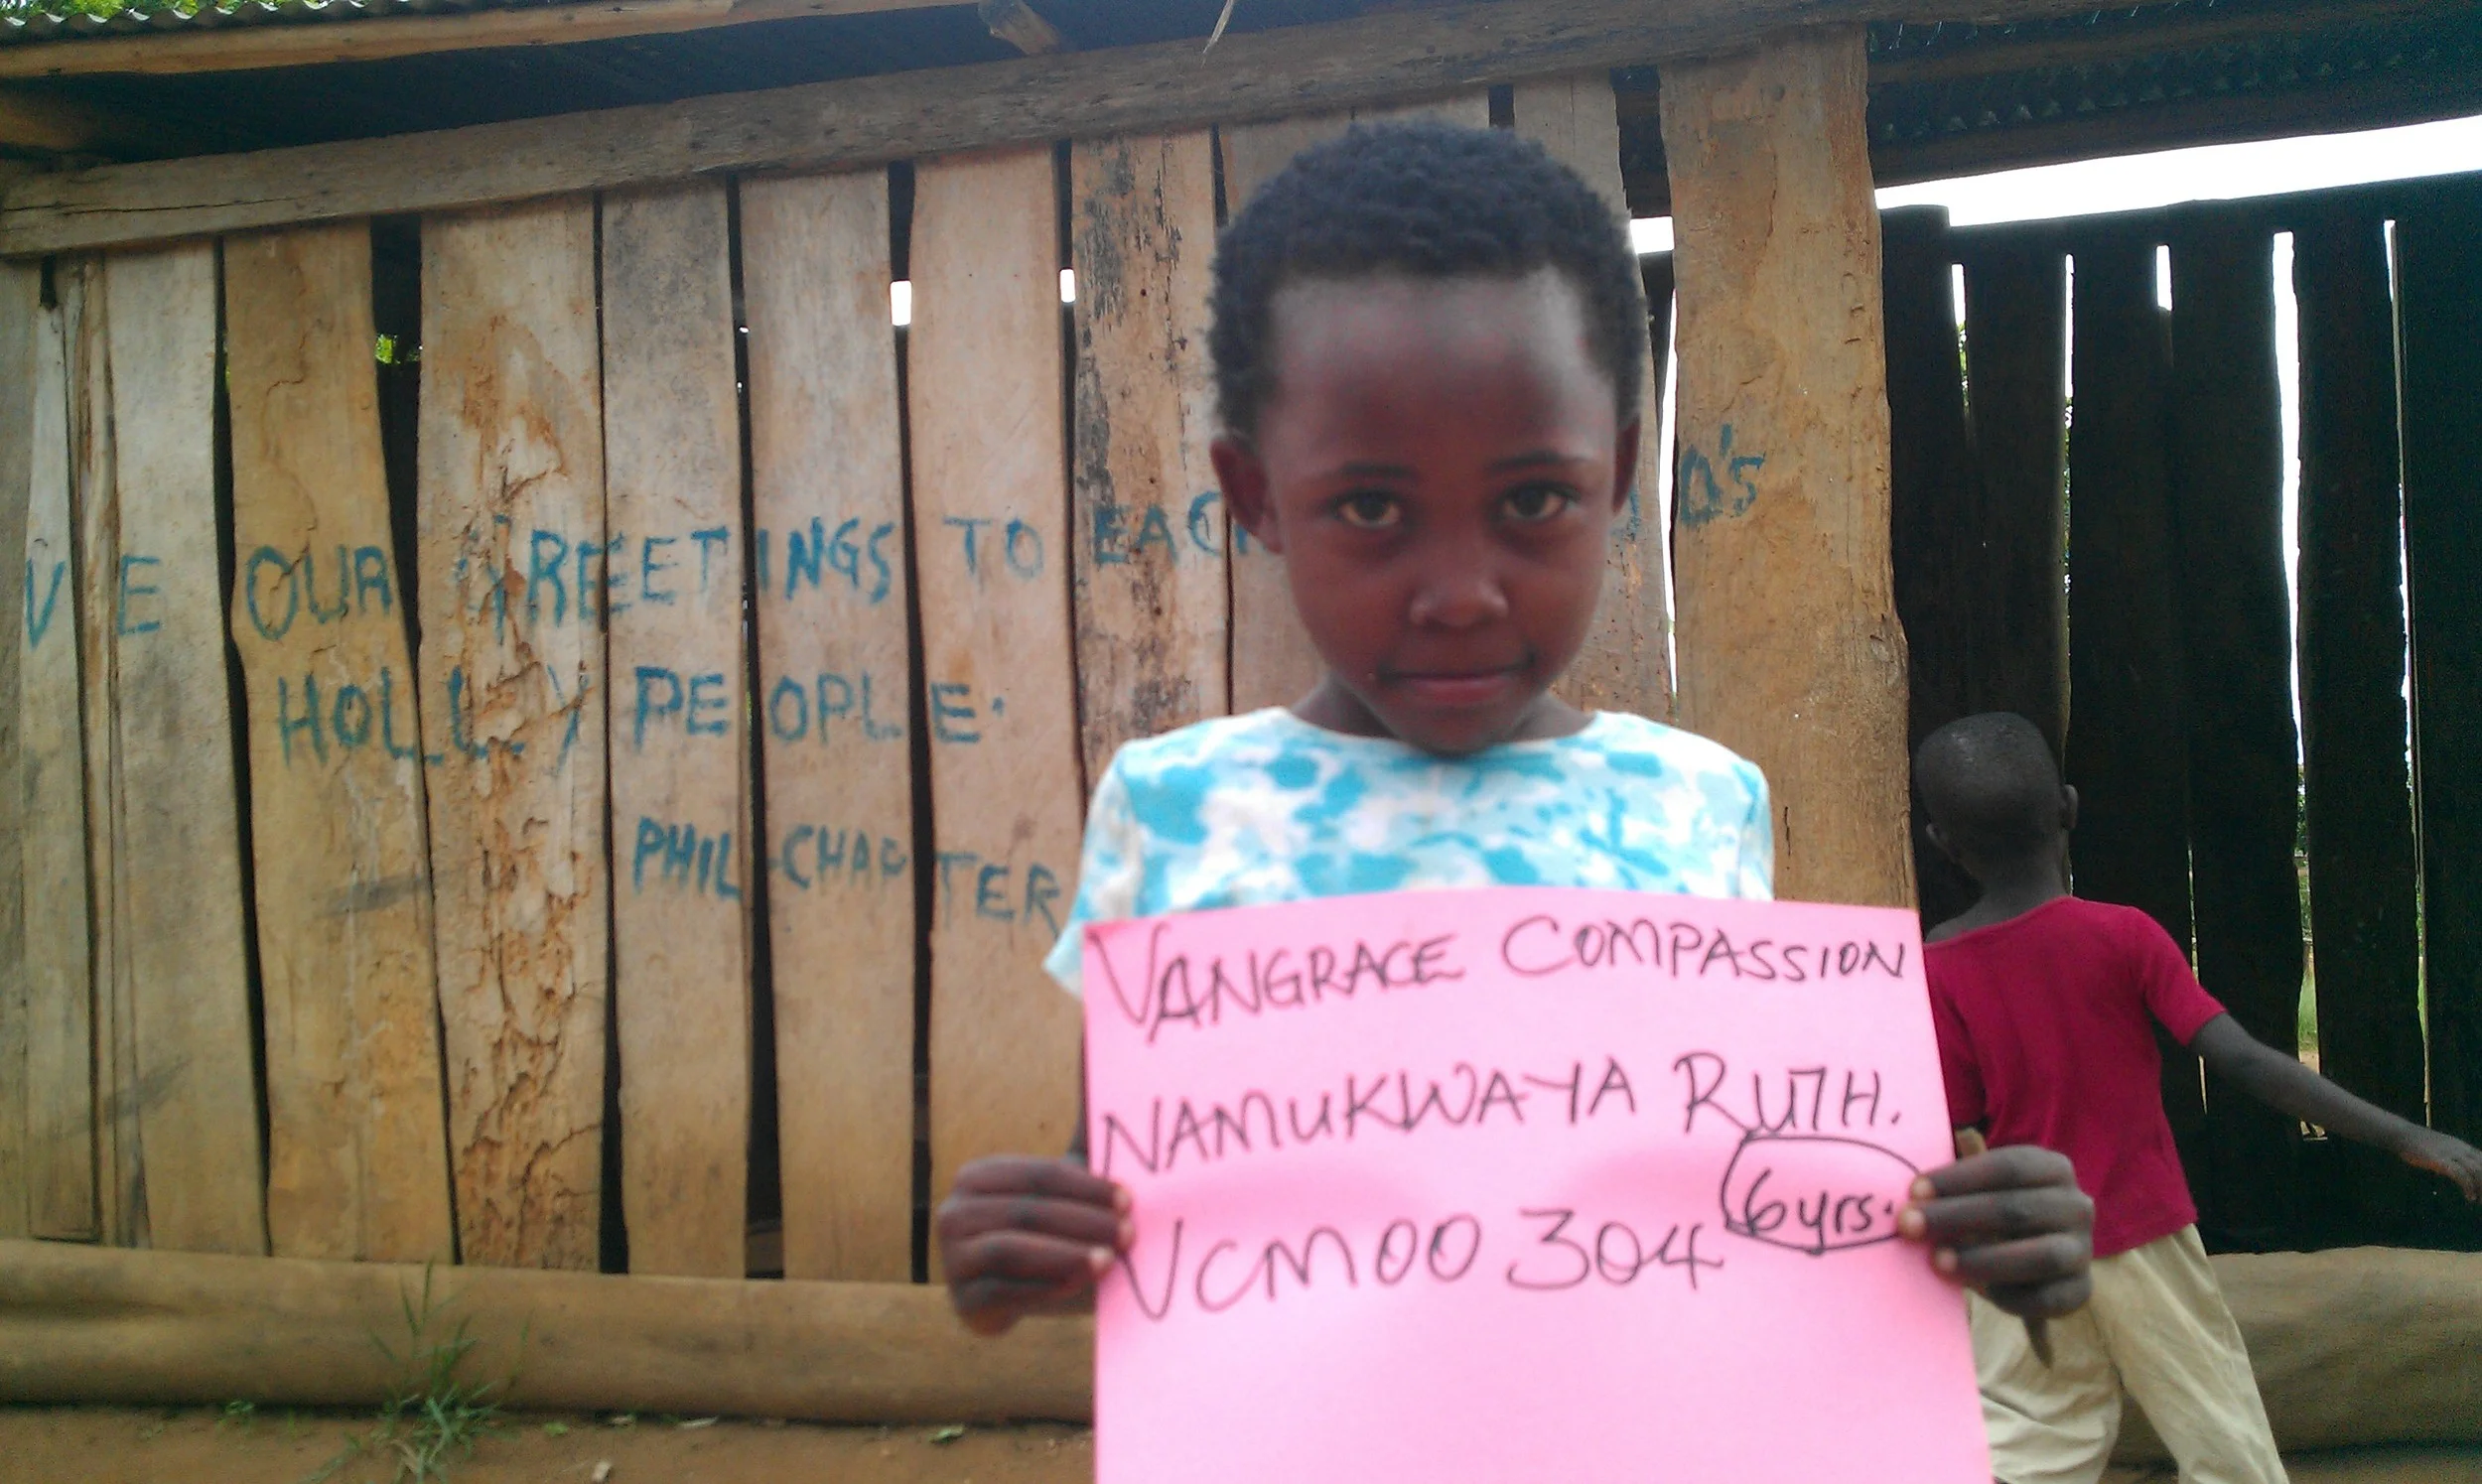 VE OUR GREETINGS TO EACH O'S
HOLLY PEOPLE.
PHIL-CHAPTER
VANGRACE COMPASSION
NAMUKWAYA RUTH.
6yrs.
VCM00 304